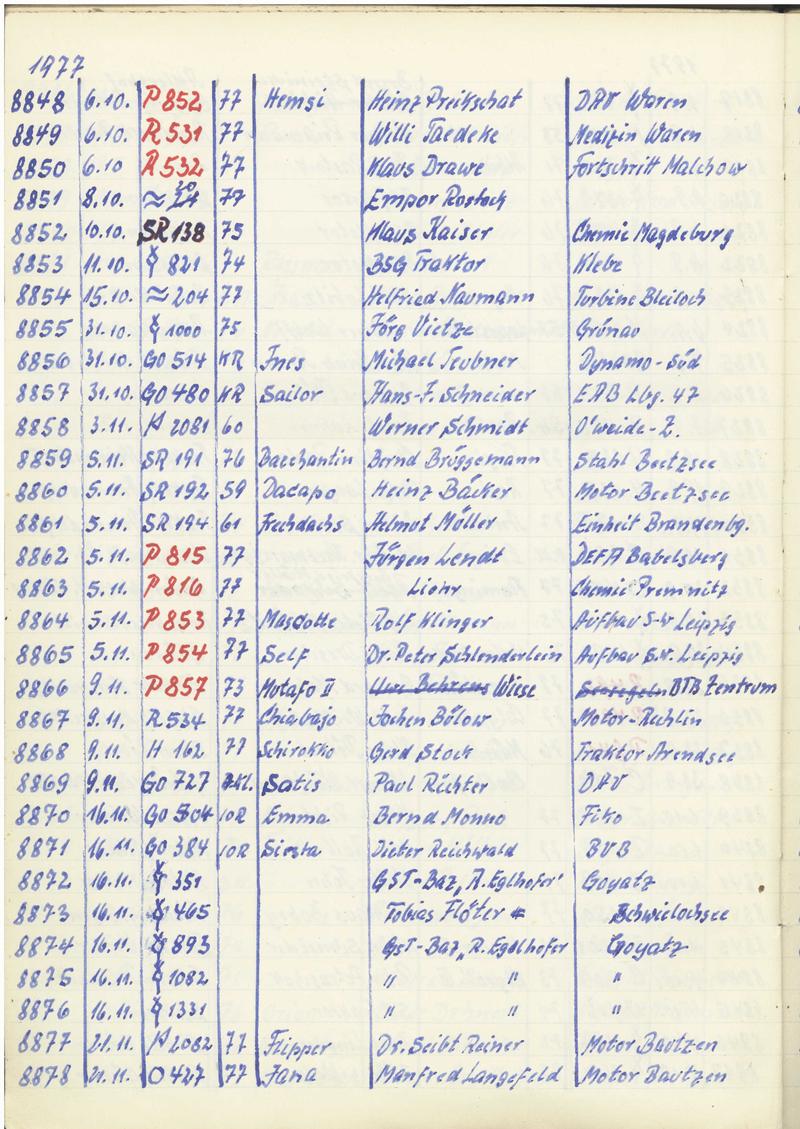 1977
8848 6.10. P 852 77 Hemsi Heinz Preikschat DAV Waren
8849 6.10. R 531 77 Willi Taedeke Medizin Waren
8850 6.10 R 532 77 Klaus Drawe Fortschritt Malchow
8851 8.10. ≈ 77 Empor Rostock
8852 10.10. SR 138 75 Klaus Kaiser Chemie Magdeburg
8853 11.10. 821 74 BSG Traktor Klebe
8854 15.10. ≈ 204 77 Helfried Naumann Turbine Bleiloch
8855 31.10. 1000 75 Jörg Vietze Grünau
8856 31.10. GO 514 KR Ines Michael Teubner Dynamo-Süd
8857 31.10. GO 480 KR Sailor Hans-J. Schneider EAB Lbg. 47
8858 3.11. H 2081 60 Werner Schmidt O'weide-Z.
8859 5.11. SR 191 76 Bacchantin Bernd Brüggemann Stahl Beetzsee
8860 5.11. SR 192 59 Dacapo Heinz Bäcker Motor Beetzsee
8861 5.11. SR 194 61 Frechdachs Helmut Müller Einheit Brandenbg.
8862 5.11. P 815 77 Jürgen Lendt DEFA Babelsberg
8863 5.11. P 816 77 Liohr Chemie Premnitz
8864 5.11. P 853 77 Masdotte Rolf Klinger Aufbau S-W Leipzig
8865 5.11. P 854 77 Self Dr. Peter Schlenderlein Aufbau S.W. Leipzig
8866 9.11. P 857 73 Mutafo II Uwe Behrens Wiese DTB Zentrum
8867 9.11. R 534 77 Chiabajo Jochen Bülow Motor-Rechlin
8868 9.11. H 162 77 Schirokko Gerd Stock Traktor Arendsee
8869 9.11. GO 727 Satis Paul Richter DAV
8870 16.11. GO 504 10R Emma Bernd Monno Fiko
8871 16.11. GO 384 10R Siesta Dieter Reichwald BVB
8872 16.11. 351 GST-Baz „R. Eglhofer" Goyatz
8873 16.11. 465 Tobias Flöter Schwielochsee
8874 16.11. 893 GST-Baz „R. Egelhofer Goyatz
8875 16.11. 1082 " " "
8876 16.11. 1331 " " "
8877 21.11. H 2082 77 Flipper Dr. Seibt Reiner Motor Bautzen
8878 21.11. O 427 77 Jana Manfred Langefeld Motor Bautzen